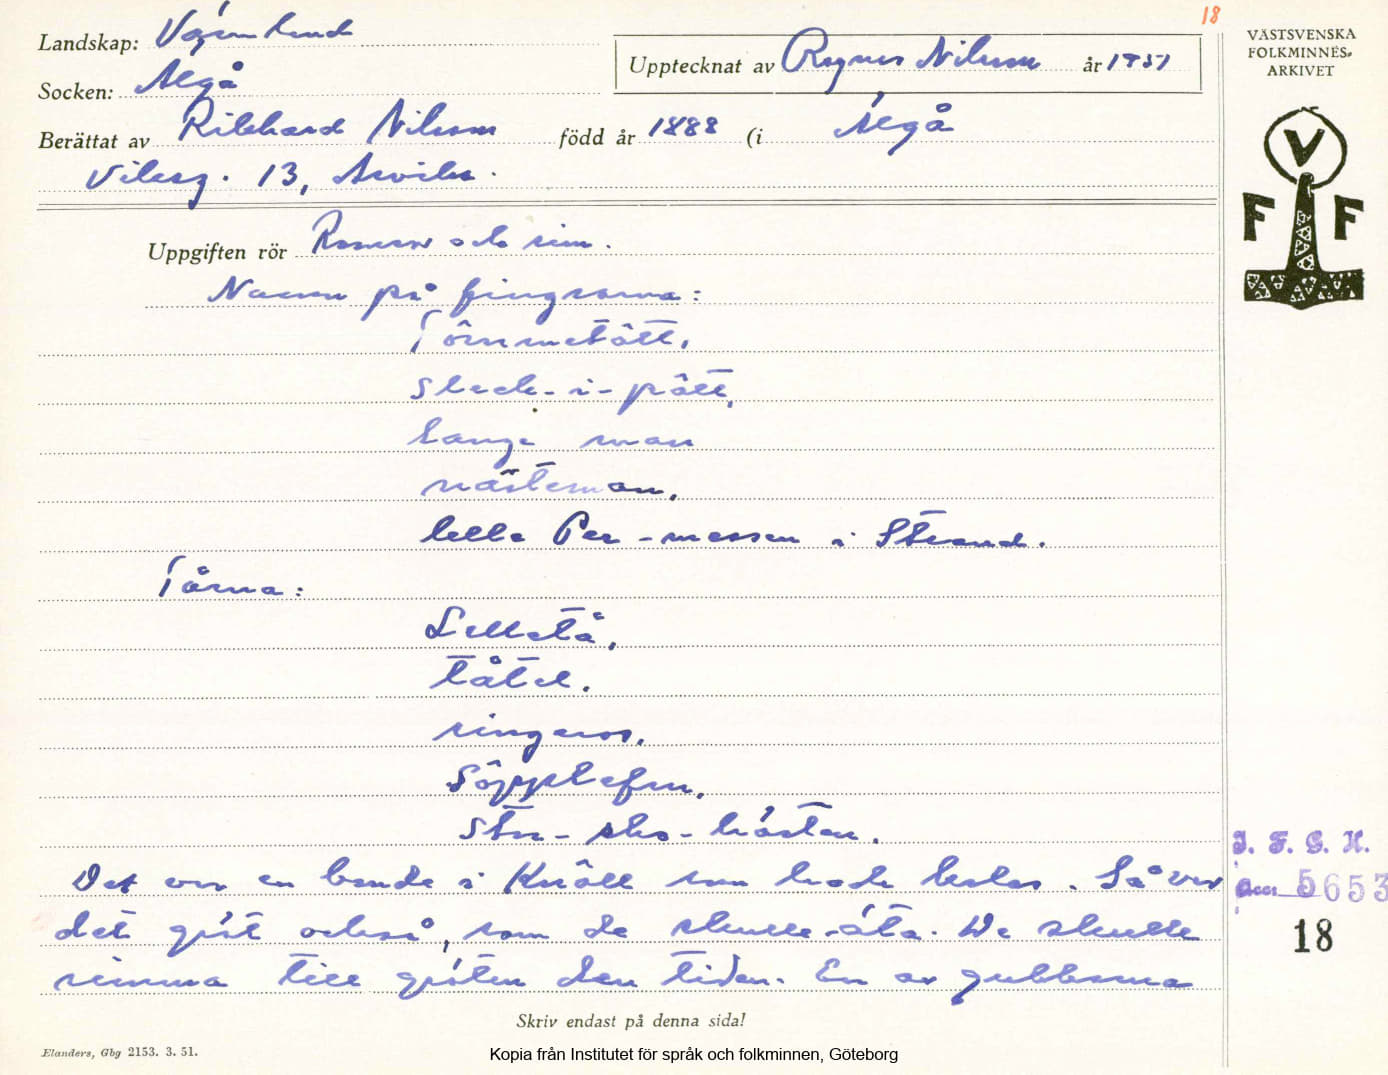 18
Landskap: Värmland
Upptecknat av Ragnar Nilsson år 1951
Socken: Älgå
Berättat av Rikhard Nilsson född år 1888 (i Älgå
Vikssg. 13, Arvika.
Uppgiften rör Ramsor och rim.
Namn på fingrarna:
Tômmetôtt,
sleck-i-pôtt,
lange man
nästeman,
lelle Per-massen i Strand.
Tårna:
Lelletå,
tåtel.
ringeros,
Söppelefru,
Stor-sko-hästen.
Det var en bonde i Knôll som hade kalas. Så var
det gröt också, som de skulle äta. De skulle
rimma till gröten den tiden. En av gubbarna
Skriv endast på denna sida!
Elanders, Gbg 2153. 3. 51.
Kopia från Institutet för språk och folkminnen, Göteborg
VÄSTSVENSKA
FOLKMINNES-
ARKIVET
V
F F
I. F. G. H.
Acc. 5653
18